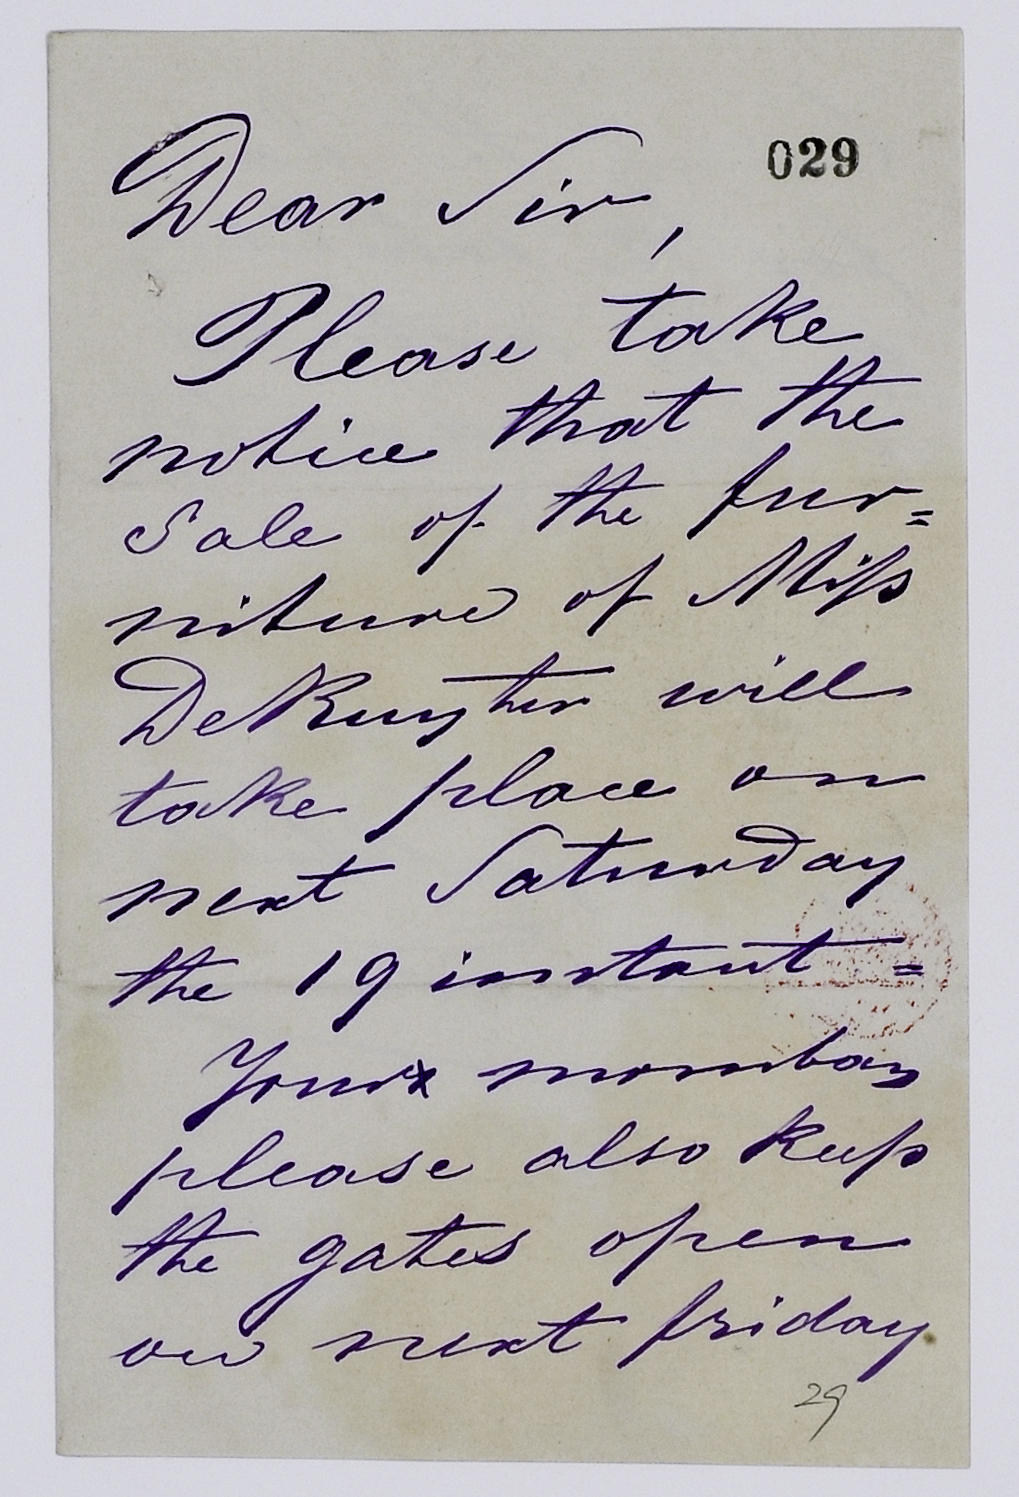 029
Dear Sir,
Please take
notice that the
Sale of the fur=
niture of Miss
DeRuyter will
take place on
next Saturday
the 19 instant =
Your
please also keep
the gates open
on next friday
29